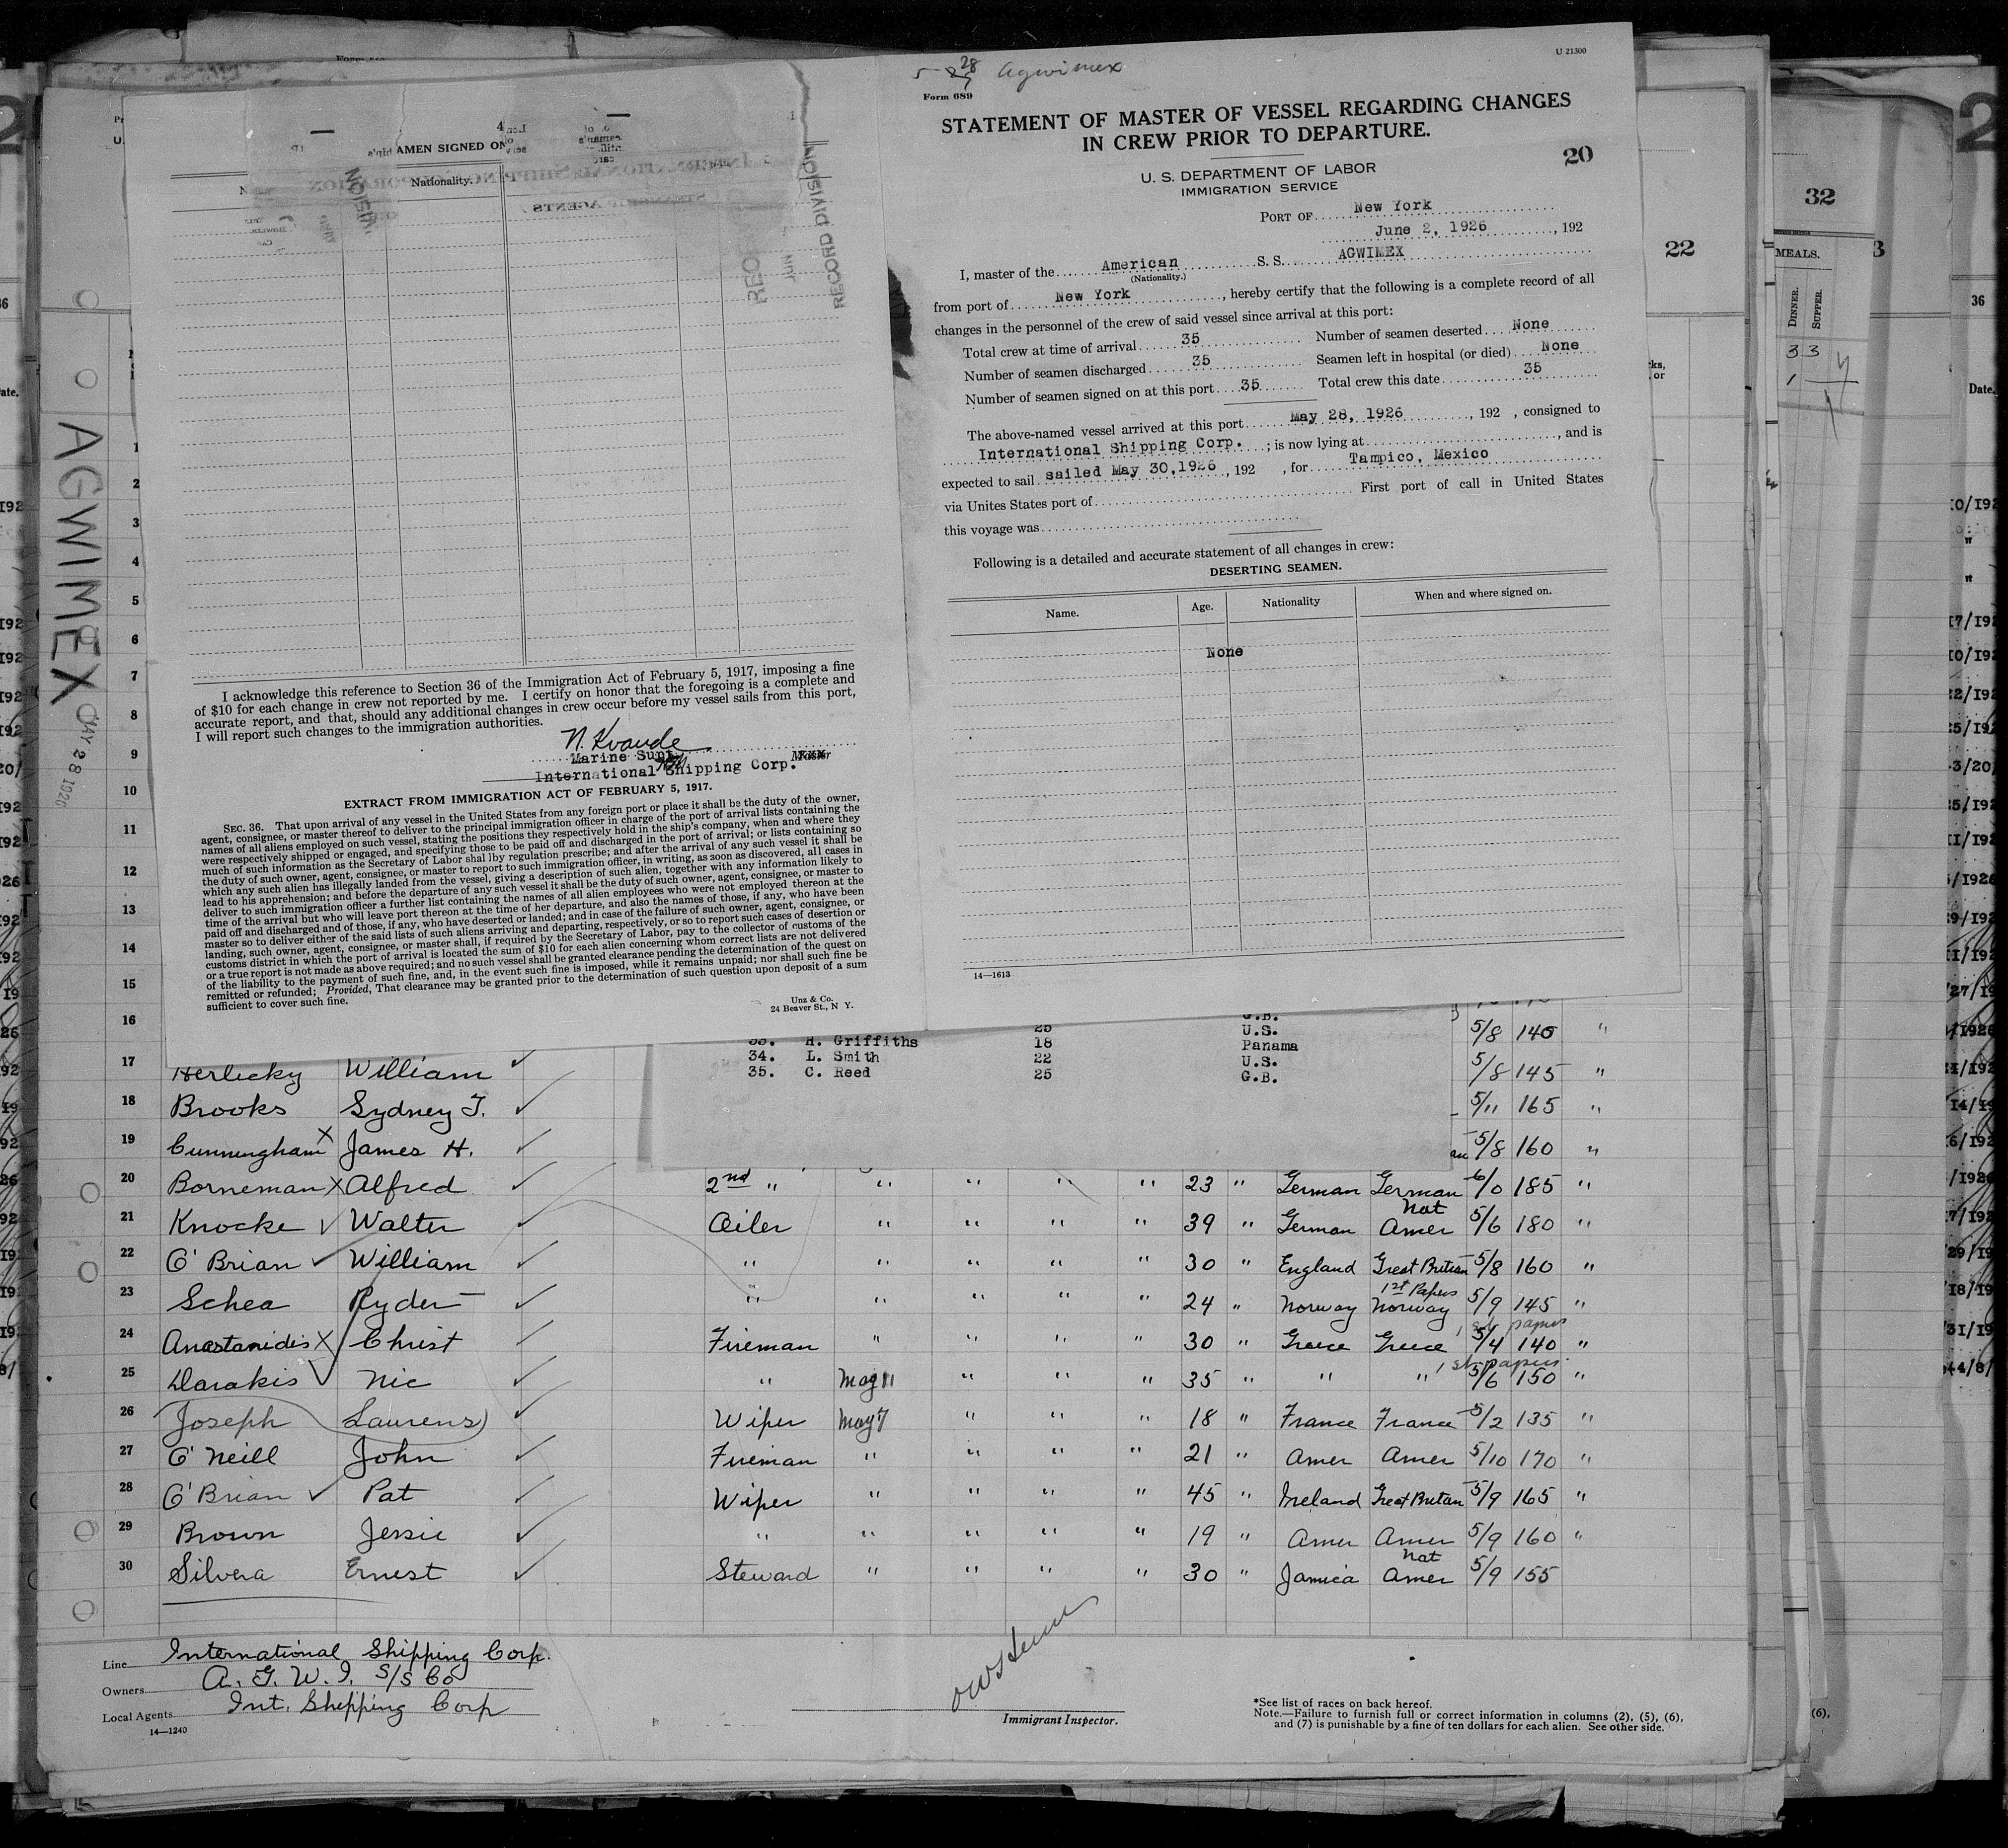 U 21300
28
Agwimex
Form 689
STATEMENT OF MASTER OF VESSEL REGARDING CHANGES
IN CREW PRIOR TO DEPARTURE.
20
U. S. DEPARTMENT OF LABOR
IMMIGRATION SERVICE
PORT OF New York
June 2, 1926, 192
I, master of the American S. S. AGWIMEX
(Nationality.)
from port of New York, hereby certify that the following is a complete record of all
changes in the personnel of the crew of said vessel since arrival at this port:
Total crew at time of arrival 35 Number of seamen deserted None
Number of seamen discharged 35 Seamen left in hospital (or died) None
Number of seamen signed on at this port 35 Total crew this date 35
The above-named vessel arrived at this port May 28, 1926, 192 , consigned to
International Shipping Corp. ; is now lying at , and is
expected to sail sailed May 30,1926, 192 , for Tampico, Mexico
via Unites States port of First port of call in United States
this voyage was
Following is a detailed and accurate statement of all changes in crew:
DESERTING SEAMEN.
Name. Age. Nationality When and where signed on.
None
14—1613
AMEN SIGNED ON
Nationality.
RECORD DIVISION
I acknowledge this reference to Section 36 of the Immigration Act of February 5, 1917, imposing a fine
of $10 for each change in crew not reported by me. I certify on honor that the foregoing is a complete and
accurate report, and that, should any additional changes in crew occur before my vessel sails from this port,
I will report such changes to the immigration authorities.
N. Kvande
Marine Supt.
Master
International Shipping Corp.
EXTRACT FROM IMMIGRATION ACT OF FEBRUARY 5, 1917.
SEC. 36. That upon arrival of any vessel in the United States from any foreign port or place it shall be the duty of the owner,
agent, consignee, or master thereof to deliver to the principal immigration officer in charge of the port of arrival lists containing the
names of all aliens employed on such vessel, stating the positions they respectively hold in the ship's company, when and where they
were respectively shipped or engaged, and specifying those to be paid off and discharged in the port of arrival; or lists containing so
much of such information as the Secretary of Labor shal lby regulation prescribe; and after the arrival of any such vessel it shall be
the duty of such owner, agent, consignee, or master to report to such immigration officer, in writing, as soon as discovered, all cases in
which any such alien has illegally landed from the vessel, giving a description of such alien, together with any information likely to
lead to his apprehension; and before the departure of any such vessel it shall be the duty of such owner, agent, consignee, or master to
deliver to such immigration officer a further list containing the names of all alien employees who were not employed thereon at the
time of the arrival but who will leave port thereon at the time of her departure, and also the names of those, if any, who have been
paid off and discharged and of those, if any, who have deserted or landed; and in case of the failure of such owner, agent, consignee, or
master so to deliver either of the said lists of such aliens arriving and departing, respectively, or so to report such cases of desertion or
landing, such owner, agent, consignee, or master shall, if required by the Secretary of Labor, pay to the collector of customs of the
customs district in which the port of arrival is located the sum of $10 for each alien concerning whom correct lists are not delivered
or a true report is not made as above required; and no such vessel shall be granted clearance pending the determination of the quest on
of the liability to the payment of such fine, and, in the event such fine is imposed, while it remains unpaid; nor shall such fine be
remitted or refunded; Provided, That clearance may be granted prior to the determination of such question upon deposit of a sum
sufficient to cover such fine.
Unz & Co.
24 Beaver St., N Y.
AGWIMEX
MAY 28 1926
22
32
MEALS.
DINNER.
SUPPER.
36
Date.
25 U.S.
33. H. Griffiths 18 Panama
34. L. Smith 22 U.S.
35. C. Reed 25 G.B.
1
2
3
4
5
6
7
8
9
10
11
12
13
14
15
16 5/8 140 "
17 Herlicky William 5/8 145 "
18 Brooks Sydney T. 5/11 165 "
19 Cunningham X James H. 5/8 160 "
20 Borneman X Alfred 2nd " " " " " 23 " German German 6/0 185 "
21 Knocke Walter Oiler " " " " 39 " German Nat Amer 5/6 180 "
22 O'Brian William " " " " " 30 " England Great Britian 5/8 160 "
23 Schea Ryder " " " " " 24 " Norway 1st Papers Norway 5/9 145 "
24 Anastanidis X Christ Fireman " " " " 30 " Greece Greece 1st papers 5/4 140 "
25 Darakis Nic " May 11 " " " 35 " " " 1st papers 5/6 150 "
26 Joseph Laurens Wiper May 7 " " " 18 " France France 5/2 135 "
27 O'Neill John Fireman " " " " 21 " Amer Amer 5/10 170 "
28 O'Brian Pat Wiper " " " " 45 " Ireland Great Britan 5/9 165 "
29 Brown Jessie " " " " " 19 " Amer Amer 5/9 160 "
30 Silvera Ernest Steward " " " " 30 " Jamica Nat Amer 5/9 155
Line International Shipping Corp.
Owners A. G. W. I. S/S Co
Local Agents Int. Shipping Corp
14—1240
Immigrant Inspector.
*See list of races on back hereof.
Note.—Failure to furnish full or correct information in columns (2), (5), (6),
and (7) is punishable by a fine of ten dollars for each alien. See other side.
(6),